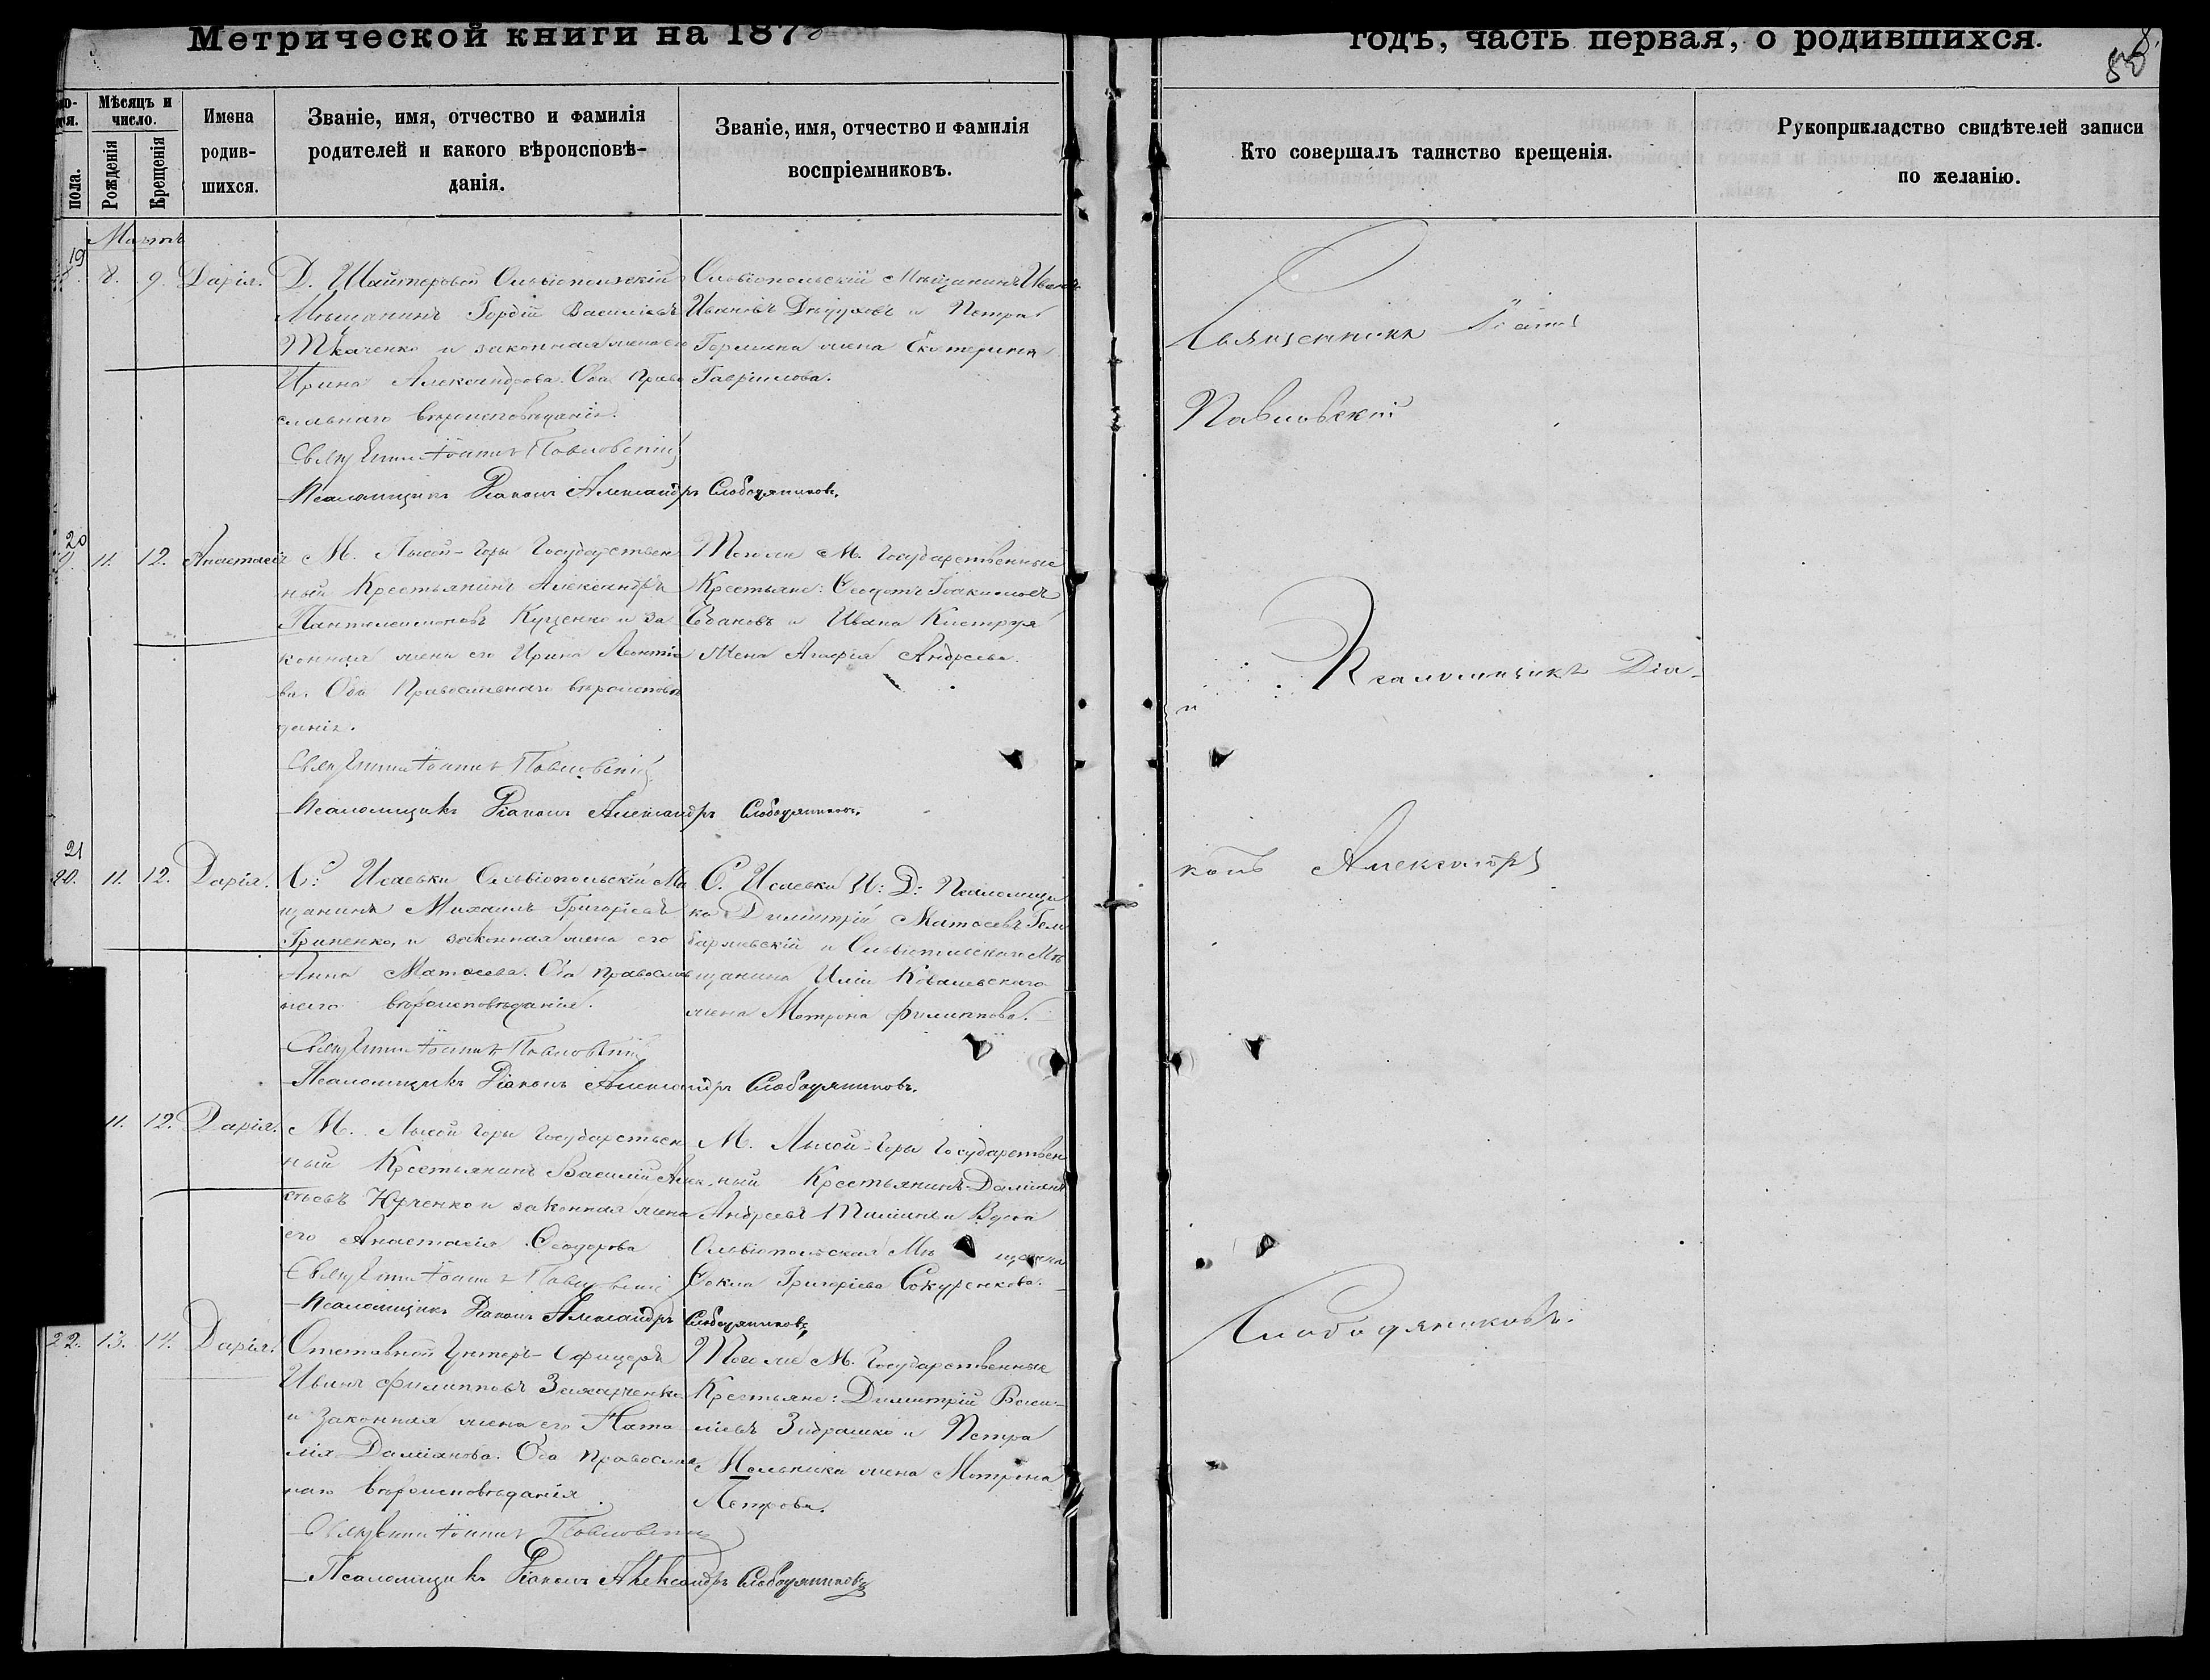 Метрической книги на 187
годъ, часть первая, о родившихся.
Мѣсяцъ и число.
пола.
Рожденія
Крещенія
Имена родив-
шихся.
Званіе, имя, отчество и фамилія
родителей и какого вѣроисповѣ-
данія.
Званіе, имя, отчество и фамилія
воспріемниковъ.
Кто совершалъ таинство крещенія.
Рукоприкладство свидѣтелей записи
по желанію.
Мартъ
19
8. 9. Дарія.
Ольвіопольскій
Мѣщанинъ Гордій Васильевъ
Ткаченко и законная жена его
Ирина Александрова. Оба Право
славнаго вѣроисповѣданія.
Священникъ Іоаннъ Павловскій
Псаломщикъ Діаконъ Александръ Слободяниковъ.
Ольвіопольскій Мѣщанинъ Иванъ
Ивановъ и Петра
жена Екатерина
Гавріилова.
Священникъ Іоаннъ
Павловскій
20
11. 12. Анастасія
М. Лысой-Горы Государствен
ный Крестьянинъ Александръ
Пантелеимоновъ Куценко и за
конная жена его Ирина Леонтіе
ва. Оба Православнаго вѣроисповѣ
данія.
Священникъ Іоаннъ Павловскій
Псаломщикъ Діаконъ Александръ Слободяниковъ.
Того же М. Государственные
Крестьяне: Ѳеодотъ Іоакимовъ
и Ивана
жена Агафія Андреева.
Псаломщикъ Діа-
21
11. 12. Дарія.
С: Исаевки Ольвіопольскій Мѣ
щанинъ Михаилъ Григоріевъ
Гриненко, и законная жена его
Анна Матѳеева. Оба православ
наго вѣроисповѣданія.
Священникъ Іоаннъ Павловскій
Псаломщикъ Діаконъ Александръ Слободяниковъ.
С. Исаевки И: Д: Псаломщи
ка Димитрій Матѳеевъ
и Ольвіопольскаго Мѣ
щанина Иліи Ковалевскаго
жена Матрона Филиппова.
конъ Александръ
11. 12. Дарія.
М. Лысой Горы Государствен
ный Крестьянинъ Василій
Юрченко и законная жена
его Анастасія Ѳеодорова
Священникъ Іоаннъ Павловскій
Псаломщикъ Діаконъ Александръ Слободяниковъ,
М. Лысой-Горы Государствен
ный Крестьянинъ Даміанъ
Андреевъ и Вдова
Ольвіопольская Мѣщанка
Григоріева
Слободяниковъ.
22. 13. 14. Дарія.
Отставной Унтеръ-Офицеръ
Иванъ Филипповъ Захарченко
и законная жена его Ната
лія Даміанова. Оба Православ
наго вѣроисповѣданія
Священникъ Іоаннъ Павловскій
Псаломщикъ Діаконъ Александръ Слободяниковъ
Того же М. Государственные
Крестьяне: Димитрій Васи-
ліевъ и Петра
Мельника жена Матрона
Петрова.